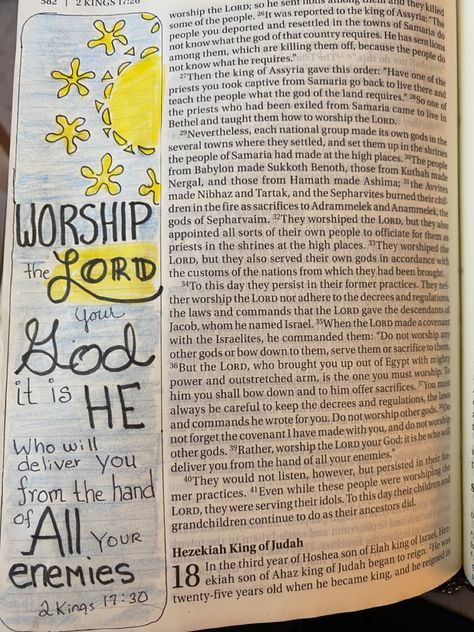 582 | 2 KINGS 17:26
WORSHIP
the LORD
your
God
it is
HE
Who will
deliver you
from the hand
of All YOUR
enemies
2 Kings 17:30
worship the LORD; so he sent lions among them and they killed
some of the people. 26It was reported to the king of Assyria: "The
people you deported and resettled in the towns of Samaria do
not know what the god of that country requires. He has sent lions
among them, which are killing them off, because the people do
not know what he requires."
27Then the king of Assyria gave this order: "Have one of the
priests you took captive from Samaria go back to live there and
teach the people what the god of the land requires." 28So one of
the priests who had been exiled from Samaria came to live in
Bethel and taught them how to worship the LORD.
29Nevertheless, each national group made its own gods in the
several towns where they settled, and set them up in the shrines
the people of Samaria had made at the high places. 30The people
from Babylon made Sukkoth Benoth, those from Kuthah made
Nergal, and those from Hamath made Ashima; 31the Avvites
made Nibhaz and Tartak, and the Sepharvites burned their chil-
dren in the fire as sacrifices to Adrammelek and Anammelek, the
gods of Sepharvaim. 32They worshiped the LORD, but they also
appointed all sorts of their own people to officiate for them as
priests in the shrines at the high places. 33They worshiped the
LORD, but they also served their own gods in accordance with
the customs of the nations from which they had been brought.
34To this day they persist in their former practices. They nei-
ther worship the LORD nor adhere to the decrees and regulations,
the laws and commands that the LORD gave the descendants of
Jacob, whom he named Israel. 35When the LORD made a covenant
with the Israelites, he commanded them: "Do not worship any
other gods or bow down to them, serve them or sacrifice to them.
36But the LORD, who brought you up out of Egypt with mighty
power and outstretched arm, is the one you must worship. To
him you shall bow down and to him offer sacrifices. 37You must
always be careful to keep the decrees and regulations, the laws
and commands he wrote for you. Do not worship other gods. 38Do
not forget the covenant I have made with you, and do not worship
other gods. 39Rather, worship the LORD your God; it is he who will
deliver you from the hand of all your enemies."
40They would not listen, however, but persisted in their for-
mer practices. 41Even while these people were worshiping the
LORD, they were serving their idols. To this day their children and
grandchildren continue to do as their ancestors did.
Hezekiah King of Judah
18 In the third year of Hoshea son of Elah king of Israel, Hez-
ekiah son of Ahaz king of Judah began to reign. 2He was
twenty-five years old when he became king, and he reigned in